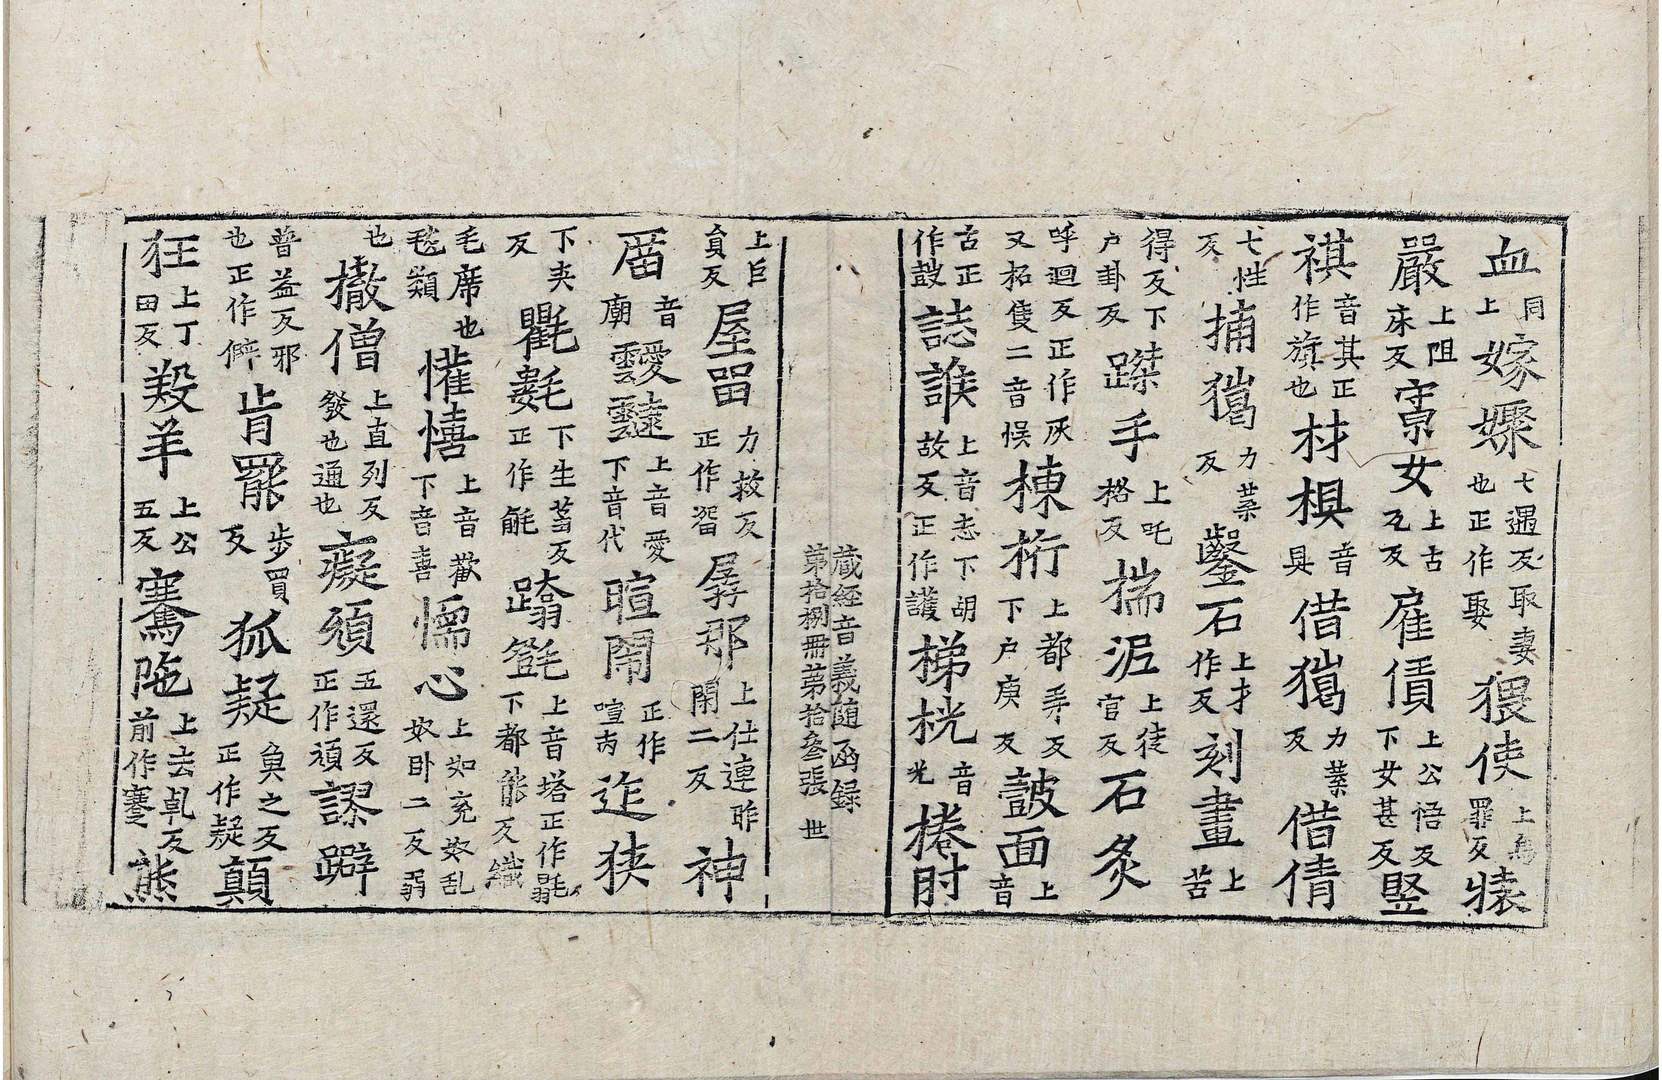 血同上嫁娶七遇反取妻也正作娶猥使上烏罪反猿
嚴上阻床反寡女上古瓦反雇債上公悟反下女甚反竪
褀音其正作旗也材椇音具借獦力葉反借倩
七性反捕獦力葉反鑿石上才作反刻畫上苦
得反下户卦反蹀手上吒格反揣泥上徒官反石灸
呼迴反正作灰又柘隻二音悮棟桁上都弄反下户庚反皷面上音
古正作鼓誌誰上音志下胡故反正作護梯桄音光捲肘
藏經音義随函録
第拾捌冊第拾叄張 世
上巨貟反屋畱力救反正作畱孱那上仕連昨閑二反神
厝音廟靉靆上音愛下音代暄閙正作喧丙迮狹
下夾反氍㲣下生蒭反正作毹蹹㲪上音塔正作㲩下都能反織
毛席也毯類懽憘上音歡下音喜懦心上如兖奴乱奴卧二反弱
也撤僧上直列反發也通也癡頑五還反正作頑謬躃
普益反邪也正作僻肯羆步買反狐疑魚之反正作疑顛
狂上丁田反羖羊上公五反騫陁上去乹反前作蹇熊